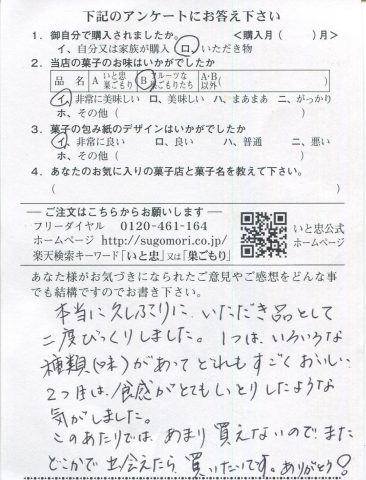 下記のアンケートにお答え下さい
1．御自分で購入されましたか。　＜購入月（　　）月＞
イ、自分又は家族が購入　ロ、いただき物
2．当店の菓子のお味はいかがでしたか
品　名　A いと忠巣ごもり　B フルーツな巣ごもりたち　A・B以外（　　　）
イ、非常に美味しい　ロ、美味しい　ハ、まあまあ　ニ、がっかり
ホ、その他（　　　）
3．菓子の包み紙のデザインはいかがでしたか
イ、非常に良い　ロ、良い　ハ、普通　ニ、悪い
ホ、その他（　　　）
4．あなたのお気に入りの菓子店と菓子名を教えて下さい。
（　　　）
― ご注文はこちらからお願いします ―
フリーダイヤル　0120-461-164
ホームページ　http://sugomori.co.jp/
楽天検索キーワード「いと忠」又は「巣ごもり」
いと忠公式
ホームページ
あなた様がお気づきになられたご意見やご感想をどんな事
でも結構ですのでお書き下さい。
本当に久しぶりに、いただき品として
二度びっくりしました。1つは、いろいろな
種類(味)があってどれもすごくおいしい
2つ目は、食感がとてもしっとりしたような
気がしました。
このあたりでは、あまり買えないので、また
どこかで出会えたら買いたいです。ありがとう！